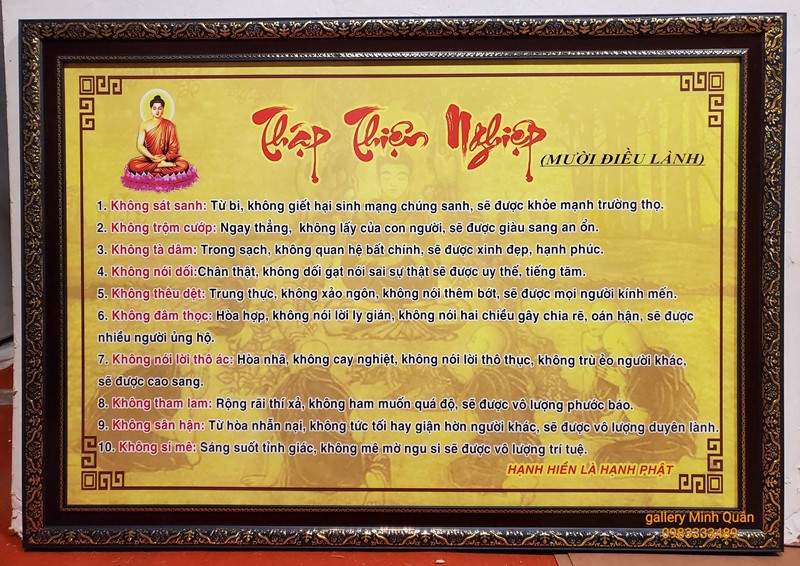 Thập Thiện Nghiệp
(MƯỜI ĐIỀU LÀNH)
1. Không sát sanh: Từ bi, không giết hại sinh mạng chúng sanh, sẽ được khỏe mạnh trường thọ.
2. Không trộm cướp: Ngay thẳng, không lấy của con người, sẽ được giàu sang an ổn.
3. Không tà dâm: Trong sạch, không quan hệ bất chính, sẽ được xinh đẹp, hạnh phúc.
4. Không nói dối:Chân thật, không dối gạt nói sai sự thật sẽ được uy thế, tiếng tăm.
5. Không thêu dệt: Trung thực, không xảo ngôn, không nói thêm bớt, sẽ được mọi người kính mến.
6. Không đâm thọc: Hòa hợp, không nói lời ly gián, không nói hai chiều gây chia rẽ, oán hận, sẽ được
nhiều người ủng hộ.
7. Không nói lời thô ác: Hòa nhã, không cay nghiệt, không nói lời thô thục, không trù ẻo người khác,
sẽ được cao sang.
8. Không tham lam: Rộng rãi thí xả, không ham muốn quá độ, sẽ được vô lượng phước báo.
9. Không sân hận: Từ hòa nhẫn nại, không tức tối hay giận hờn người khác, sẽ được vô lượng duyên lành.
10. Không si mê: Sáng suốt tỉnh giác, không mê mờ ngu si sẽ được vô lượng trí tuệ.
HẠNH HIỀN LÀ HẠNH PHẬT
gallery Minh Quân
0983333489